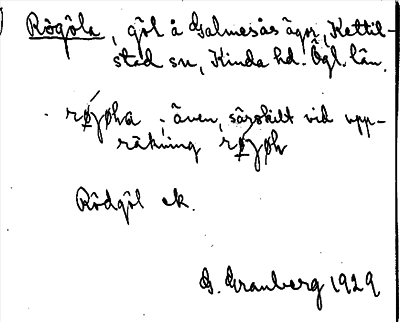 Rögöla, göl å Galmesås ägor, Kettil-
stad sn, Kinda hd. Ögl. län.
røjøha; även, särskilt vid upp-
räkning røjøh
Rödgöl ek.
G. Granberg 1929